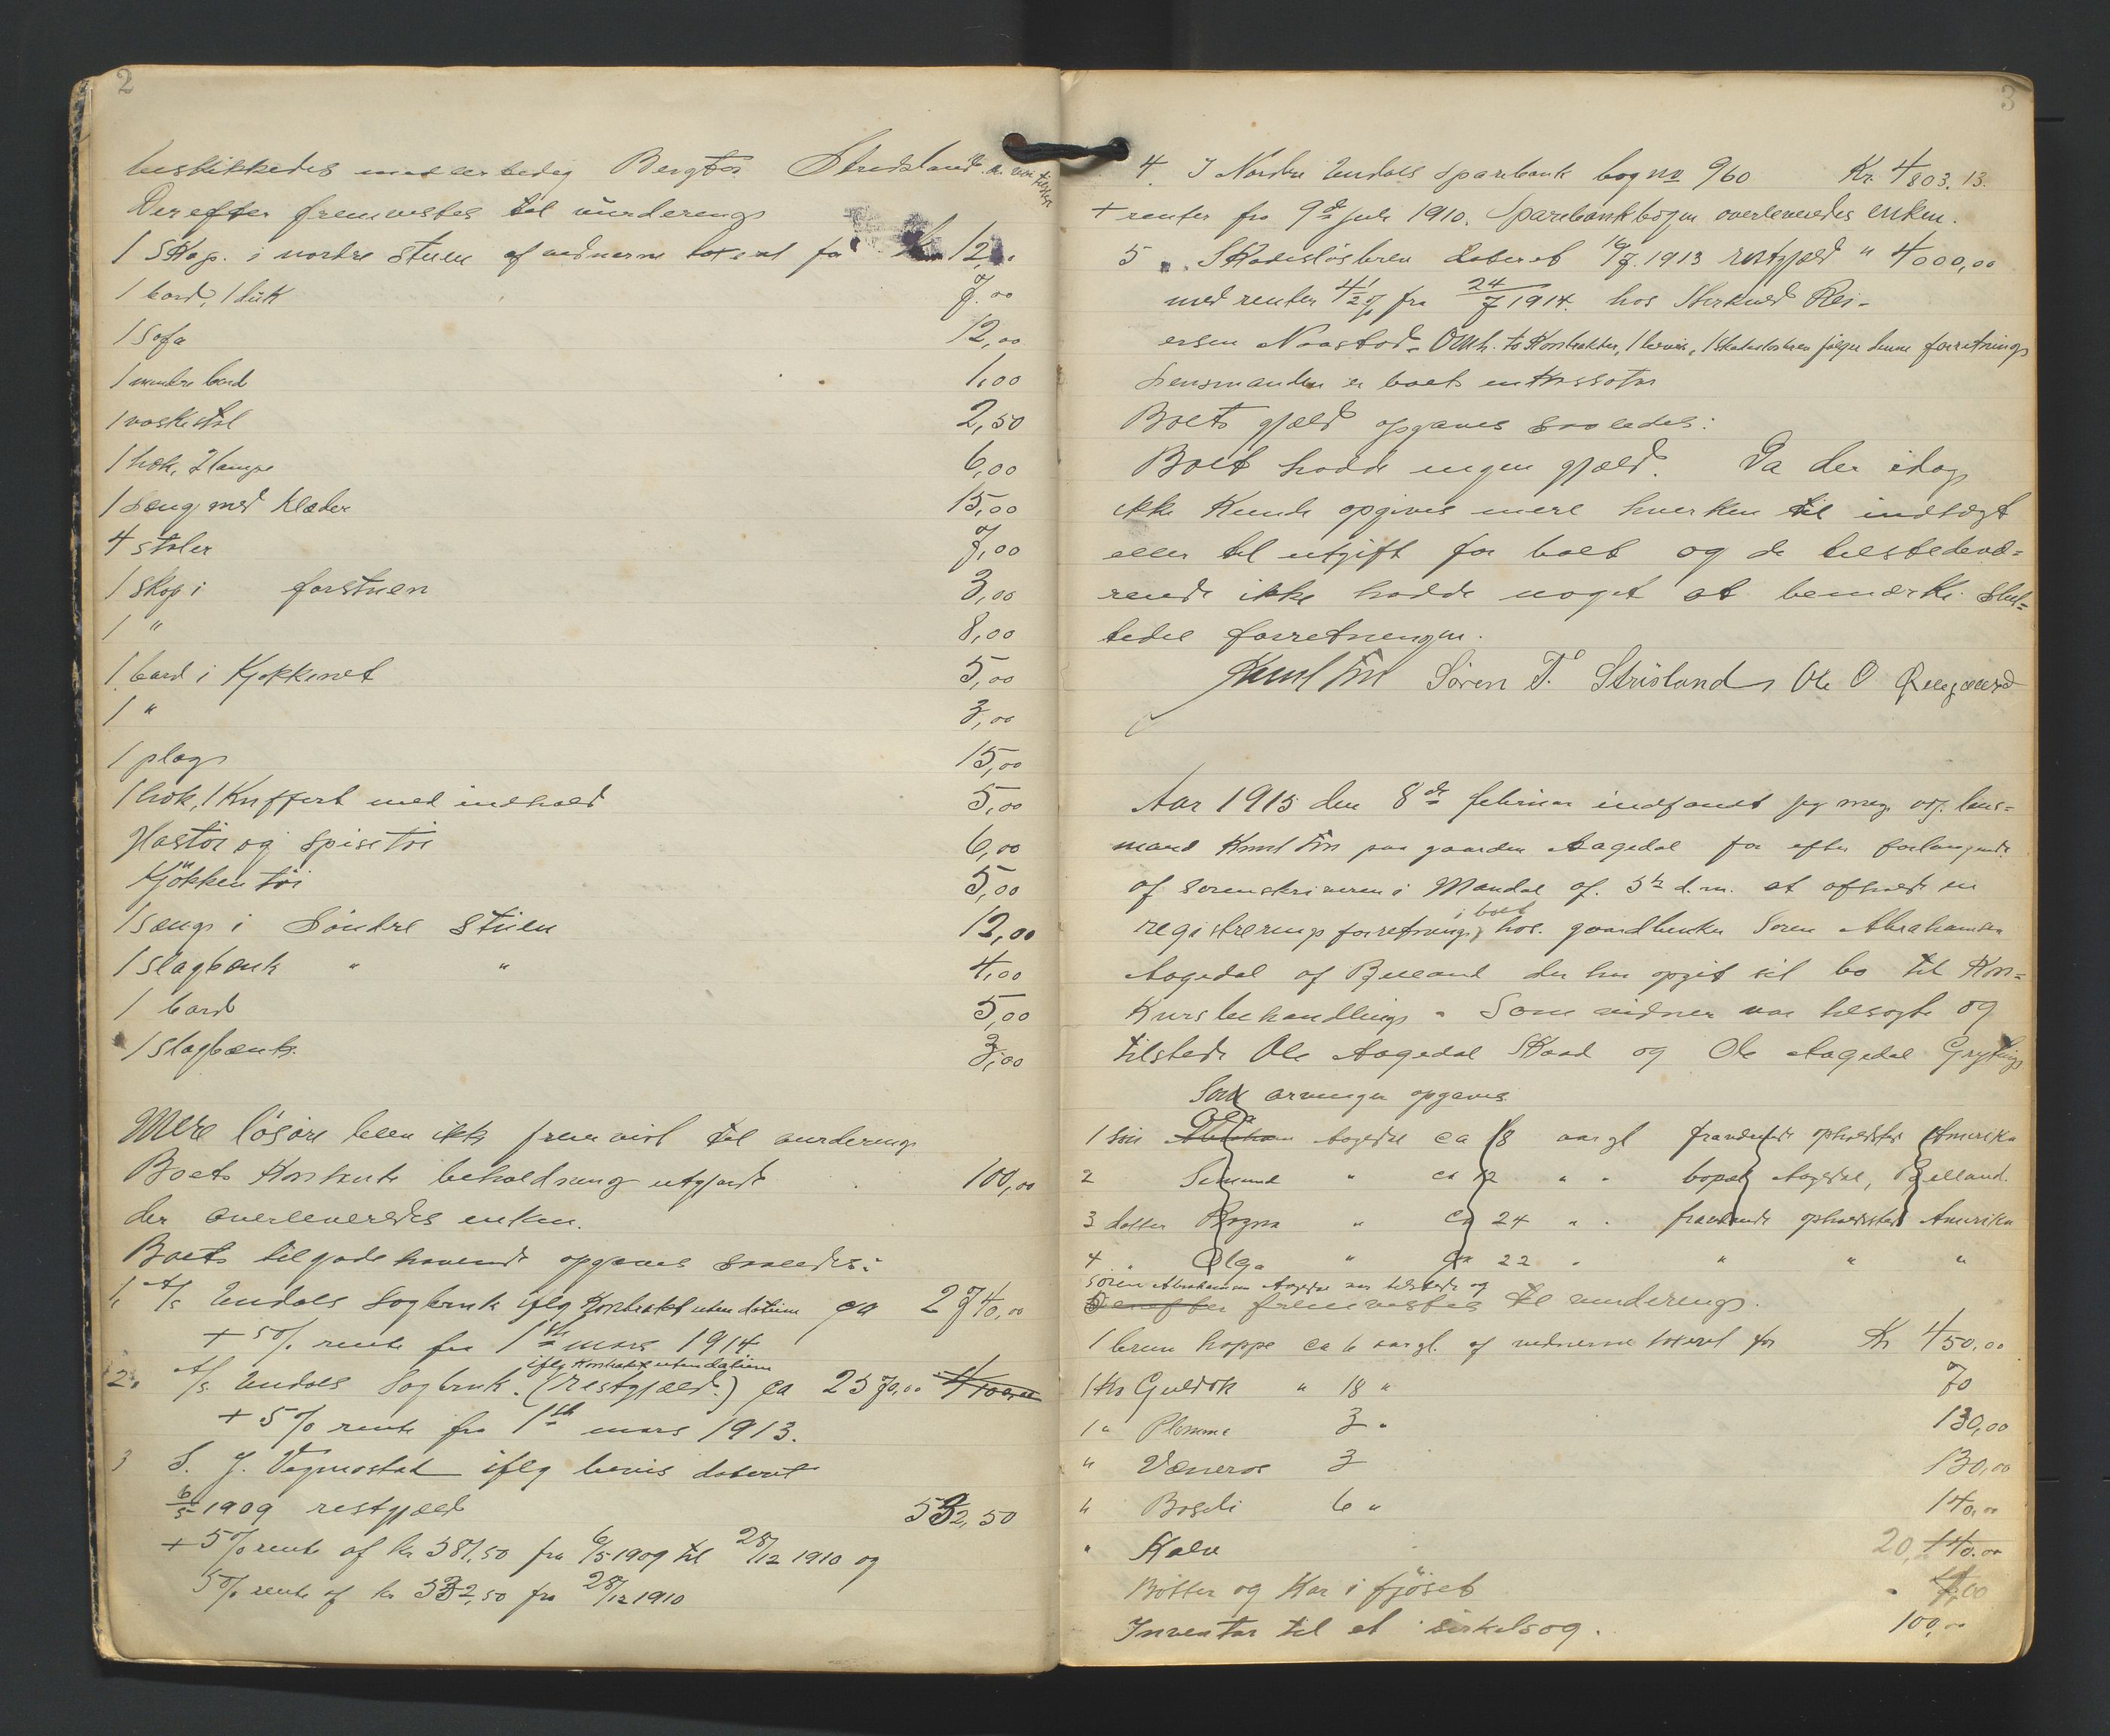 2
beskikkedes Bergtor Stridsland
Derefter fremvistes til vurdering
1 Skap i nordre stuen af vidnerne taxeret for 12,
1 bord, 1 duk 7.00
1 Sofa 12,00
1 mindre bord 1,00
1 vaskestol 2,50
1 hok, 2 lampe 6,00
1 seng med klæder 15,00
4 stoler 7,00
1 skap i forstuen 3,00
1 " 8,00
1 bord i Kjøkkenet 5,00
1 " 3,00
1 plog 15,00
1 hok, 1 Kuffert med indhold 5,00
og Spisetøi 6,00
Kjøkkentøi 5,00
1 seng i Søndre stuen 12,00
1 slagbænk " " 4,00
1 bord 5,00
1 slagbænk 3,00
Mere løsøre blev ikke fremvist til vurdering
Boets Kontante beholdning utgjorde 100,00
der overleveredes enken.
Boets tilgodehavende opgaves saaledes:
1. A/s Undals Sagbruk iflg Kontrakt uten datum ca 2740,00
+ 5% rente fra 1ste mars 1914
iflg Kontrakt uten datum
2. A/s Undals Sagbruk. (restgjæld.) ca 2570,00
+ 5% rente fra 1ste mars 1913.
3 S. J. Vegmostad iflg bevis datert
6/5 1909 restgjæld 532,50
+ 5% rente af kr 581,50 fra 6/5 1909 til 28/12 1910 og
5% rente af kr 532,50 fra 28/12 1910
3
4. I Nordre Undals Sparebank bog no 960 Kr. 4803.13.
+ renter fra 9de juli 1910. Sparebankbogen overleveredes enken.
5 " Skadesløsbrev datert 1913 restgjæld " 4000,00
med renter 4 1/2 % fra 24/7 1914. hos Sterkud Rei-
ersen Naastad. Omh. to Kontrakter, 1 bevis, 1 skadesløsbrev følger denne forretning
Lensmanden er boets inkassator
Boets gjæld opgaves saaledes:
Boet hadde ingen gjæld. Da der idag
ikke kunde opgives mere hverken til indtægt
eller til utgift for boet og de tilstedevæ=
rende ikke hadde noget at bemærke slut=
tedes forretningen.
Knut Fin Søren T. Strisland Ole O Øiegaard
Aar 1915 den 8de februar indfandt jeg mig lens=
mand Knut Fin paa gaarden Aagedal for efter forlangende
af sorenskriveren i Mandal af 5te d.m. at afholde en
i boet
registreringsforretning hos gaardbruker Søren Abrahamsen
Aagedal af Bjelland der har opgit sit bo til Kon=
kursbehandling. Som vidner var tilsagte og
tilstede Ole Aagedal Skaad og Ole Aagedal Gryting
Som arvinger opgaves
Ole
1 søn Abraham Aagedal ca 18 aar gl fraværende opholdsted Amerika
2 Simund " ca 12 " " bopæl Aagedal, Bjelland.
3 datter Ragna " ca 24 " " fraværende opholdssted Amerika
4 " Olga " ca 22 " " " "
Søren Abrahamsen Aagedal var tilstede og
Derefter fremvistes til vurdering.
1 brun hoppe ca 6 aar gl. af vidnerne taxeret for Kr 450,00
1 Ko Guldok " 18 " 70
1 " Plomme 3 " 130,00
" Væneros 3 130,00
" Boseli 6 " 140,00
" Kalv 20, 140.00
Bøtter og Kar i fjøset
Inventar til et sirkelsag. 100,00